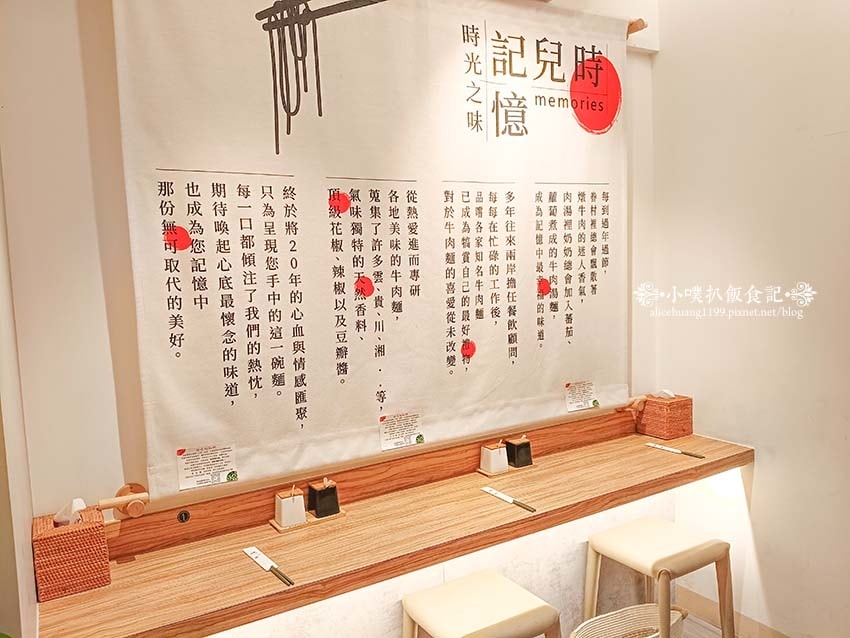 時兒記憶
memories
時光之味
每到過年過節，
眷村裡總會飄散著
燉牛肉的迷人香氣，
肉湯裡奶奶總會加入蕃茄、
蘿蔔煮成的牛肉湯麵，
成為記憶中最幸福的味道。
多年往來兩岸擔任餐飲顧問，
每每在忙碌的工作後，
品嚐各家知名牛肉麵，
已成為犒賞自己的最好禮物，
對於牛肉麵的喜愛從未改變。
從熱愛進而專研
各地美味的牛肉麵，
蒐集了許多雲、貴、川、湘．．等，
氣味獨特的天然香料、
頂級花椒、辣椒以及豆瓣醬。
終於將20年的心血與情感匯聚，
只為呈現您手中的這一碗麵。
每一口都傾注了我們的熱忱，
期待喚起心底最懷念的味道，
也成為您記憶中
那份無可取代的美好。
小噗扒飯食記
alicehuang1199.pixnet.net/blog